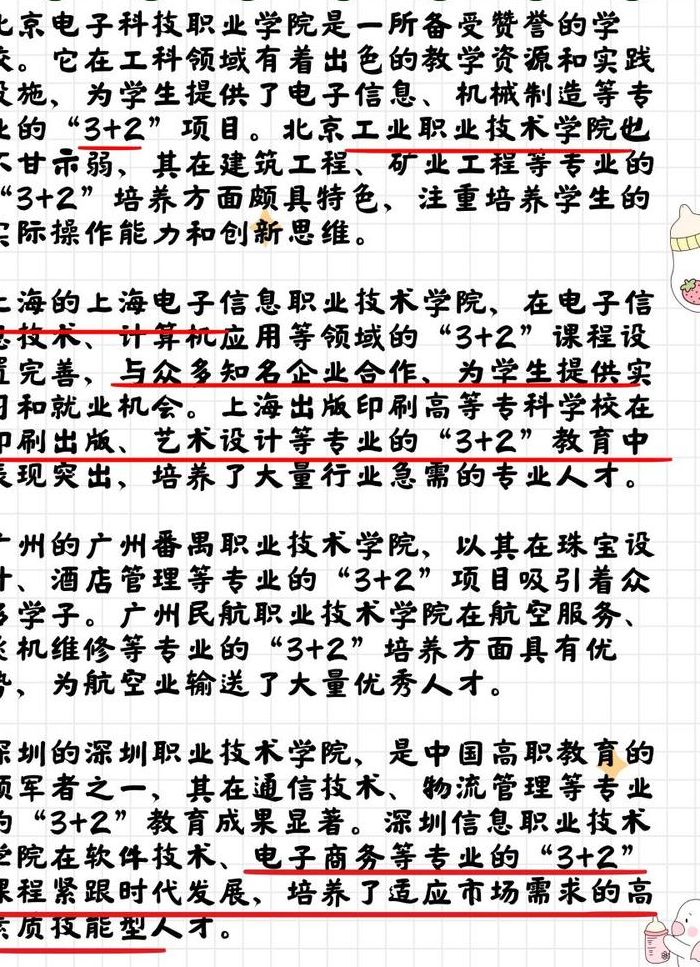 北京电子科技职业学院是一所备受赞誉的学
校。它在工科领域有着出色的教学资源和实践
设施，为学生提供了电子信息、机械制造等专
业的“3+2”项目。北京工业职业技术学院也
不甘示弱，其在建筑工程、矿业工程等专业的
“3+2”培养方面颇具特色，注重培养学生的
实际操作能力和创新思维。
上海的上海电子信息职业技术学院，在电子信
息技术、计算机应用等领域的“3+2”课程设
置完善，与众多知名企业合作，为学生提供实
习和就业机会。上海出版印刷高等专科学校在
印刷出版、艺术设计等专业的“3+2”教育中
表现突出，培养了大量行业急需的专业人才。
广州的广州番禺职业技术学院，以其在珠宝设
计、酒店管理等专业的“3+2”项目吸引着众
多学子。广州民航职业技术学院在航空服务、
飞机维修等专业的“3+2”培养方面具有优
势，为航空业输送了大量优秀人才。
深圳的深圳职业技术学院，是中国高职教育的
领军者之一，其在通信技术、物流管理等专业
的“3+2”教育成果显著。深圳信息职业技术
学院在软件技术、电子商务等专业的“3+2”
课程紧跟时代发展，培养了适应市场需求的高
素质技能型人才。